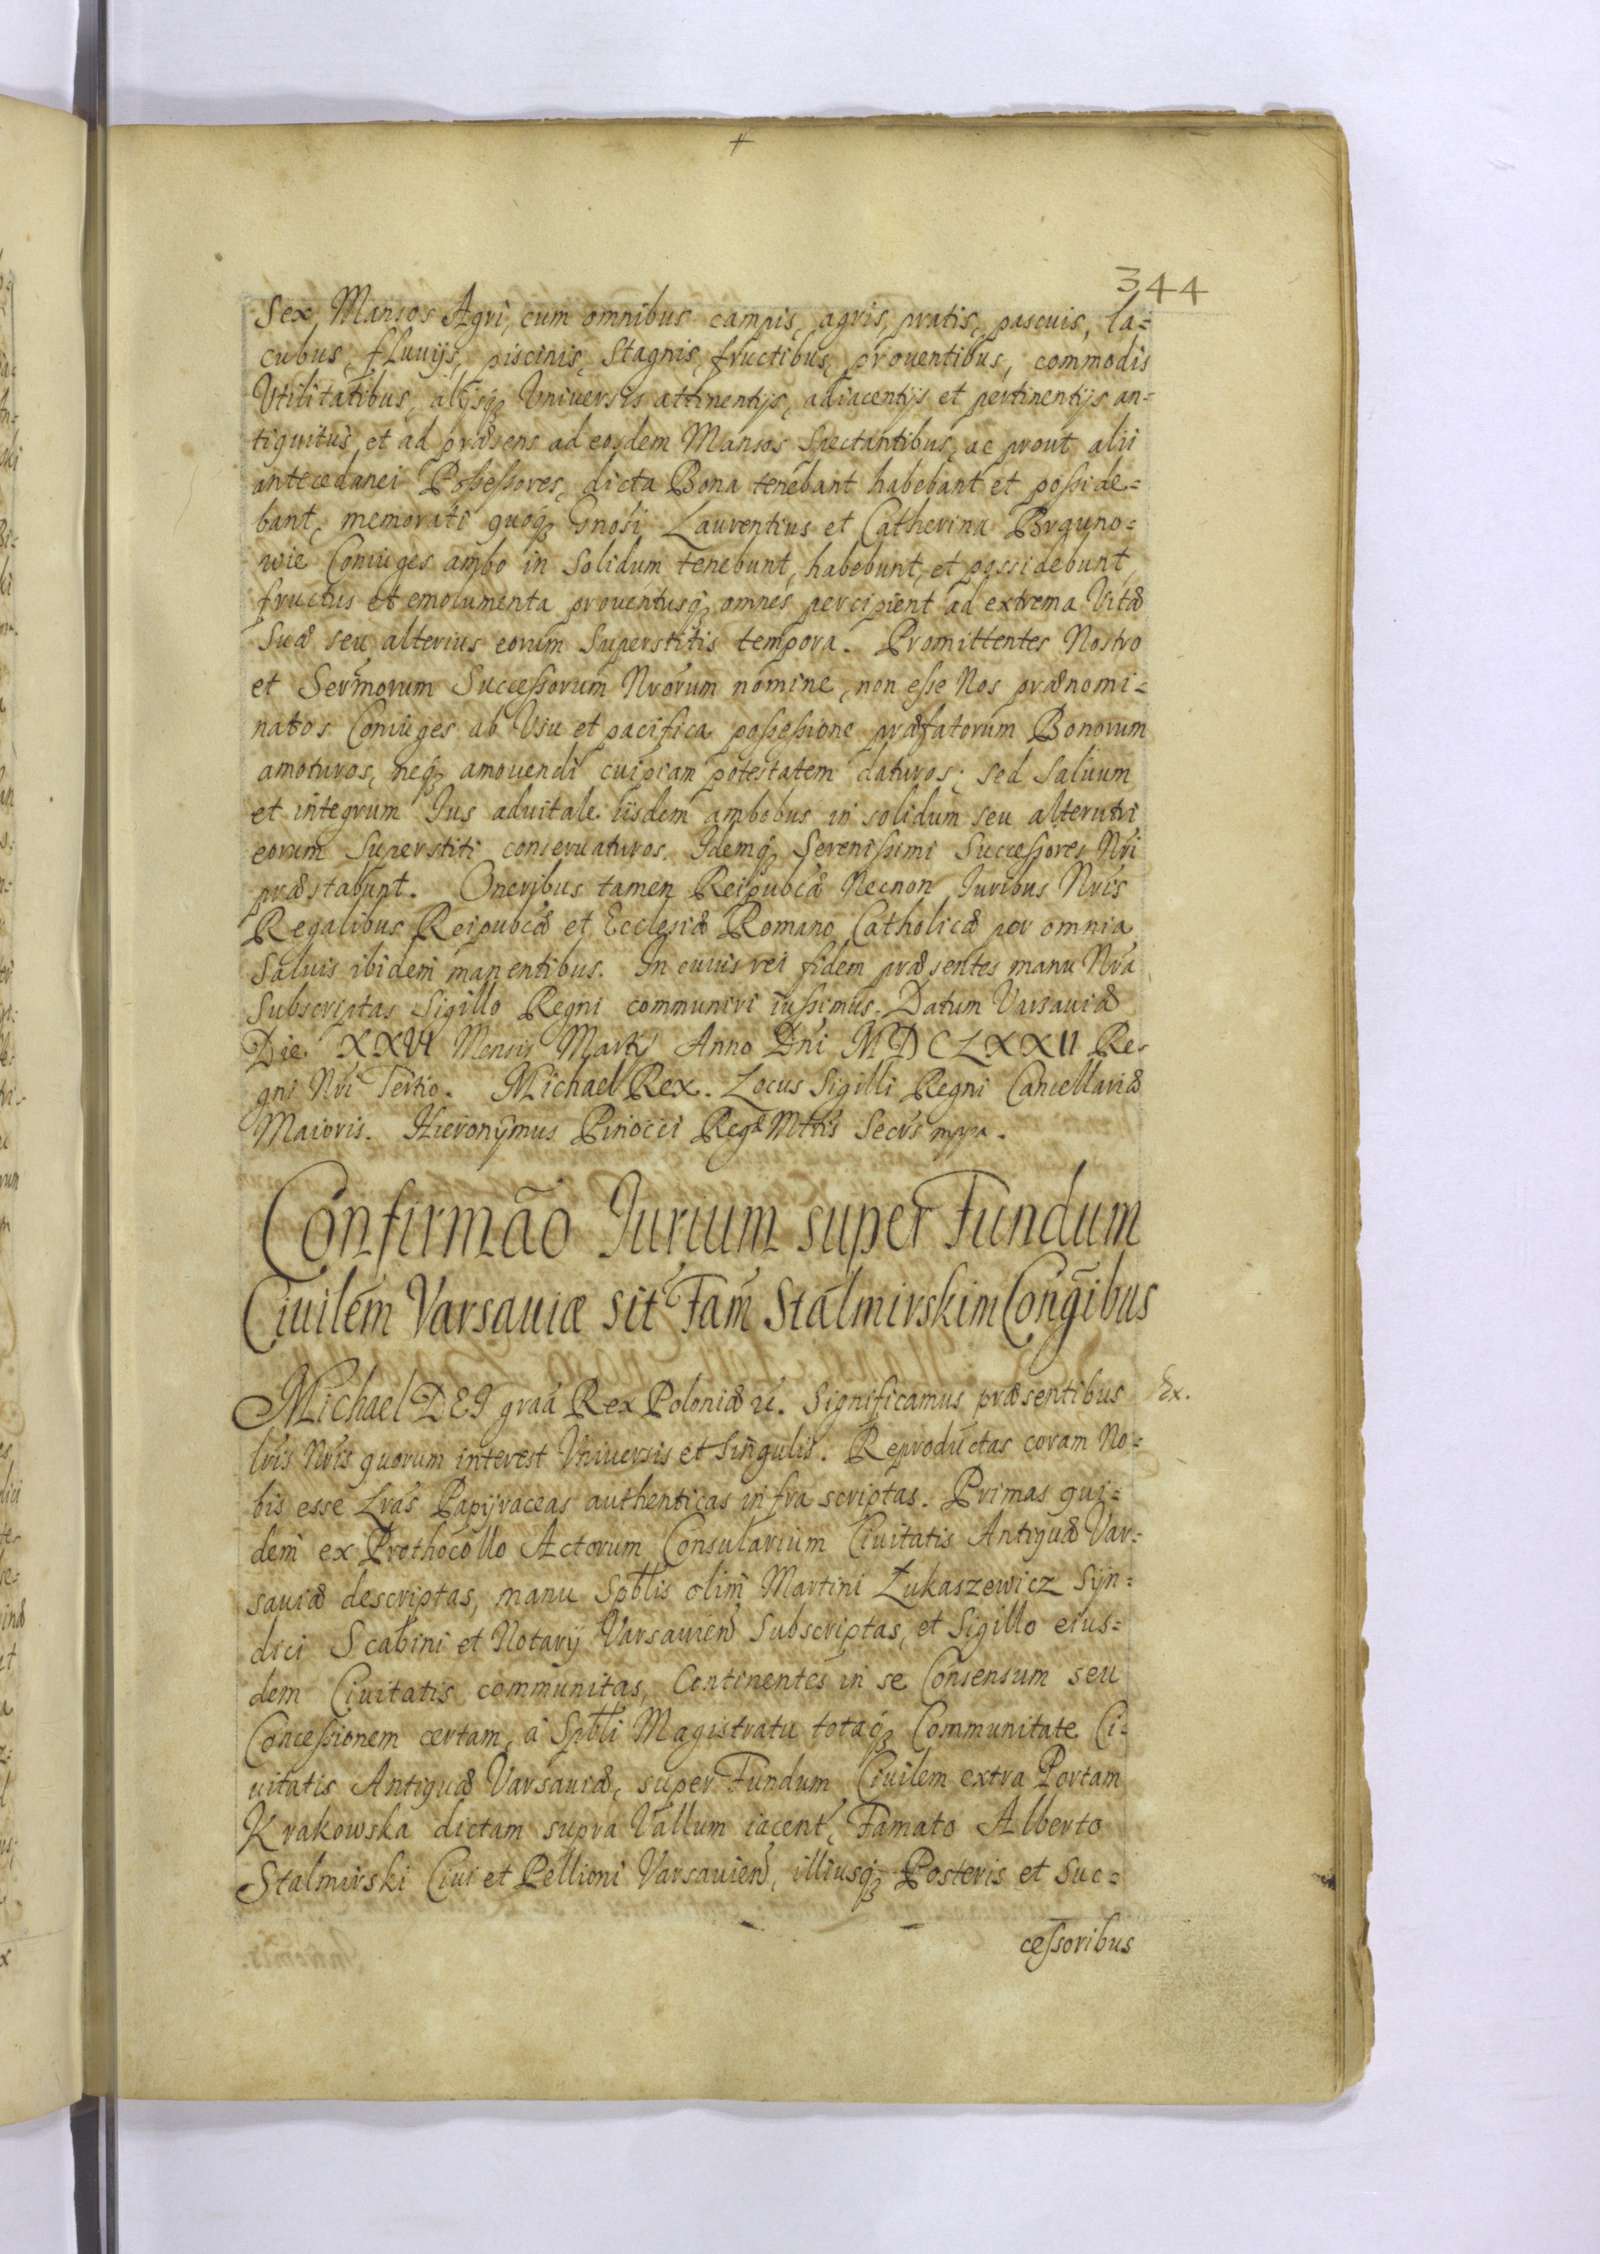 344
Sex Mansos Agri, cum omnibus campis, agris, pratis, pascuis, la=
cubus, fluuijs, piscinis, stagnis, fructibus, prouentibus, commodis
Vtilitatibus, alijsq₃ Vniuersis attinentijs, adiacentijs et pertinentijs an=
tiquitus et ad præsens ad eosdem Mansos spectantibus, ac prout alii
antecedanei Possessores, dicta Bona tenebant habebant et posside=
bant, memorati quoq₃ Gnosi Laurentius et Catherina
Coniuges ambo in solidum tenebunt, habebunt, et possidebunt,
fructus et emolumenta prouentusq₃ omnes percipient ad extrema Vitæ
Suæ seu alterius eorum Superstitis tempora. Promittentes Nostro
et Sermorum Successorum Nrorum nomine, non esse Nos prænomi=
natos Coniuges ab Vsu et pacifica possessione præfatorum Bonorum
amoturos, neq₃ amouendi cuipiam potestatem daturos; sed saluum
et integrum Ius aduitale iisdem ambobus in solidum seu alterutri
eorum Superstiti conseruaturos. Idemq₃ Serenissimi Successores Nri
præstabunt. Oneribus tamen Reipubcæ Necnon Iuribus Nris
Regalibus Reipubcæ et Ecclesiæ Romano Catholicæ per omnia
Saluis ibidem manentibus. In cuius rei fidem præsentes manu Nra
Subscriptas Sigillo Regni communiri iussimus. Datum Varsauiæ
Die XXVI Mensis Martij Anno Dni MDCLXXII Re=
gni Nri Tertio. Michael Rex. Locus Sigilli Regni Cancellariæ
Maioris. Hieronÿmus Pinocci Regæ Mttis Secrs mpp.
Confirmão Iurium super Fundum
Ciuilem Varsauiæ sit Fam Stalmirskim Congibus
Michael DEI graa Rex Poloniæ &. Significamus præsentibus Ex.
lris Nris quorum interest Vniuersis et singulis. Reproductas coram No=
bis esse Lras Papÿraceas authenticas infra scriptas. Primas qui=
dem ex Prothocollo Actorum Consularium Ciuitatis Antiquæ Var=
sauiæ descriptas, manu Spblis olim Martini Łukaszewicz Sÿn=
dici Scabini et Notarij Varsauien Subscriptas, et Sigillo eius=
dem Ciuitatis communitas, Continentes in se Consensum seu
Concessionem certam, à Spbli Magistratu totaq₃ Communitate Ci=
uitatis Antiquæ Varsauiæ, super Fundum Ciuilem extra Portam
Krakowska dictam supra Vallum iacent, Famato Alberto
Stalmirski Ciui et Pellioni Varsauien, illiusq₃ Posteris et Suc=
cessoribus